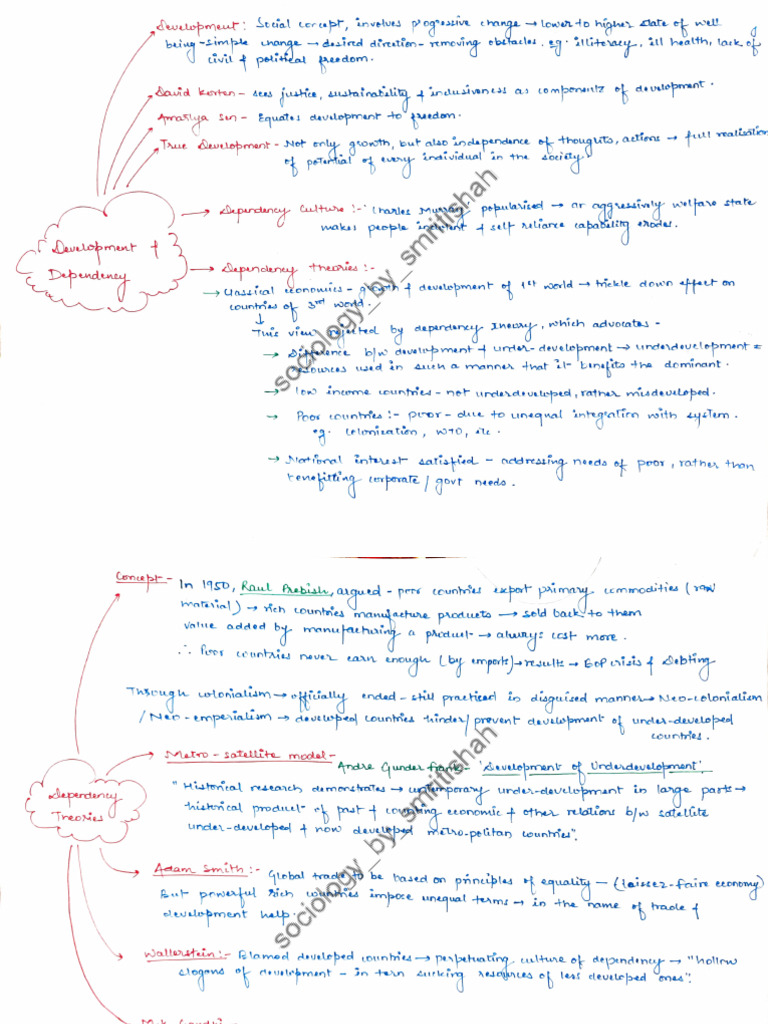 Development: Social concept, involves progressive change → lower to higher state of well
being - simple change → desired direction - removing obstacles. eg. illiteracy, ill health, lack of
civil & political freedom.
David Korten - sees justice, sustainability & inclusiveness as components of development.
Amartya Sen - Equates development to freedom.
True Development - Not only growth, but also independence of thoughts, actions → full realisation
of potential of every individual in the society.
Development &
Dependency
→ Dependency Culture :- Charles Murray popularised → an aggressively welfare state
makes people indolent & self reliance capability erodes.
→ Dependency theories :-
→ Classical economics - growth & development of 1st world → trickle down effect on
countries of 3rd world.
↓
This view rejected by dependency theory, which advocates -
→ Difference b/w development & under-development → underdevelopment =
resources used in such a manner that it benefits the dominant.
→ low income countries - not underdeveloped, rather misdeveloped.
→ Poor countries :- poor - due to unequal integration with system.
eg. colonisation, WTO, etc.
→ National interest satisfied - addressing needs of poor, rather than
benefitting corporate / govt needs.
sociology_by_smritishah
Concept - In 1950, Raul Prebish, argued - poor countries export primary commodities (raw
material) → rich countries manufacture products → sold back to them
value added by manufacturing a product → always cost more.
∴ Poor countries never earn enough (by imports) → results → BoP crisis & Debting
Through colonialism → officially ended - still practiced in disguised manner → Neo-colonialism
/ Neo-emperialism → developed countries hinder/prevent development of under-developed
countries.
Metro - satellite model -
Andre Gunder Frank - 'Development of Underdevelopment'
"Historical research demonstrates → contemporary under-development in large parts →
historical product of past & counting economic & other relations b/w satellite
under-developed & now developed metro-politan countries".
Dependency
Theories
Adam Smith :- Global trade to be based on principles of equality - (laissez-faire economy)
But powerful rich countries impose unequal terms → in the name of trade &
development help.
Wallerstein :- Blamed developed countries → perpetuating culture of dependency → "hollow
slogans of development - in tern sucking resources of less developed ones".
sociology_by_smritishah
M.K. Gandhi -